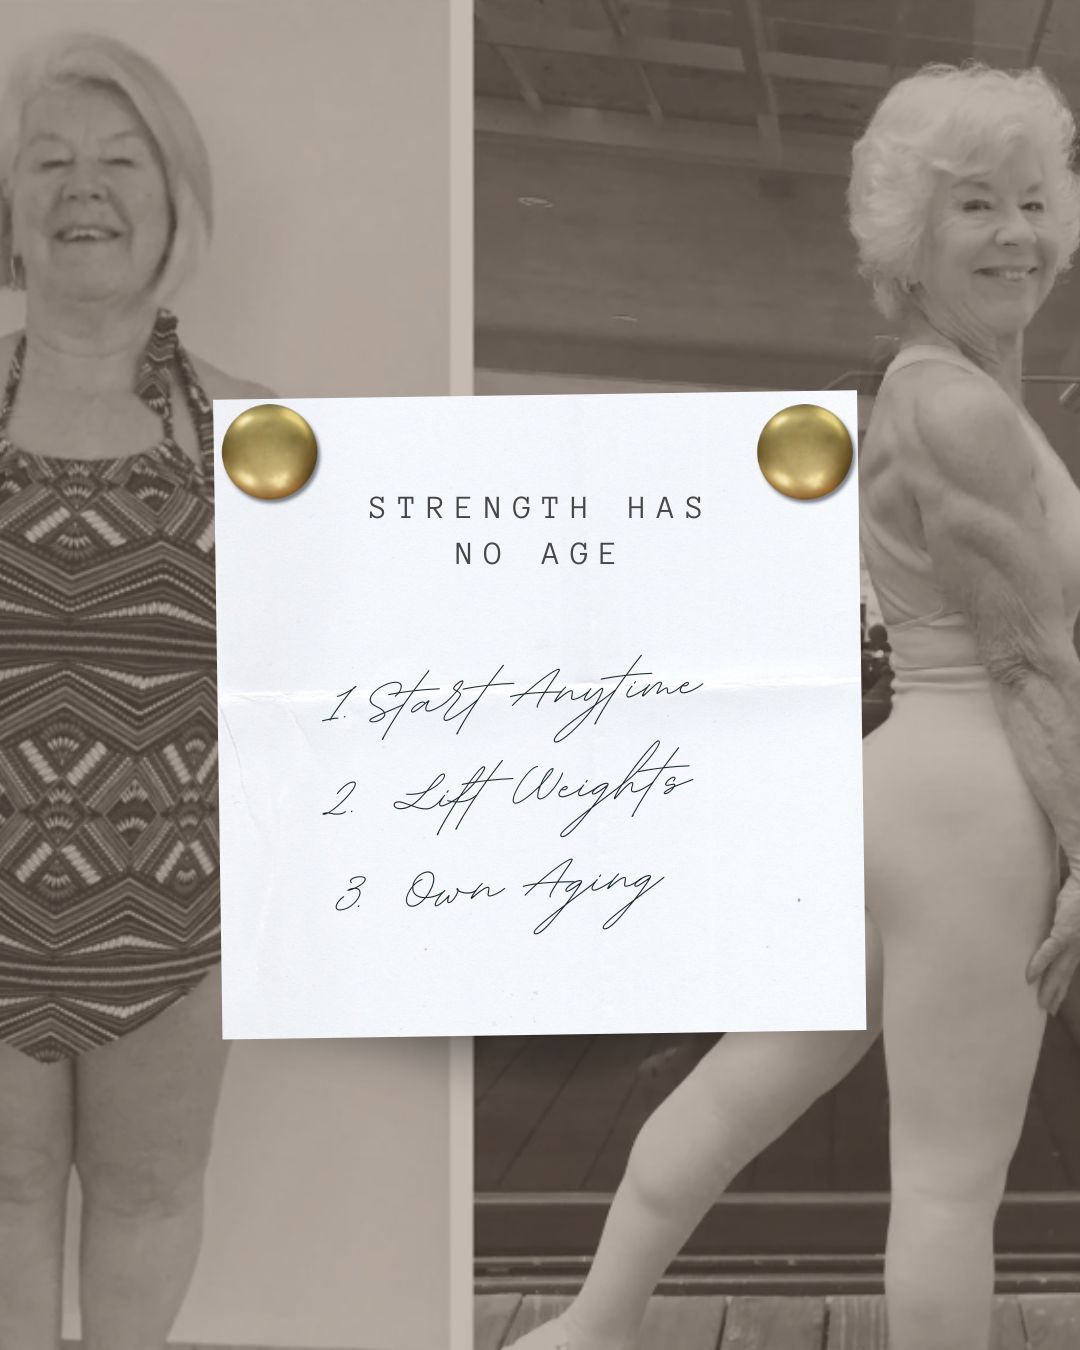 STRENGTH HAS
NO AGE
1. Start Anytime
2. Lift Weights
3. Own Aging